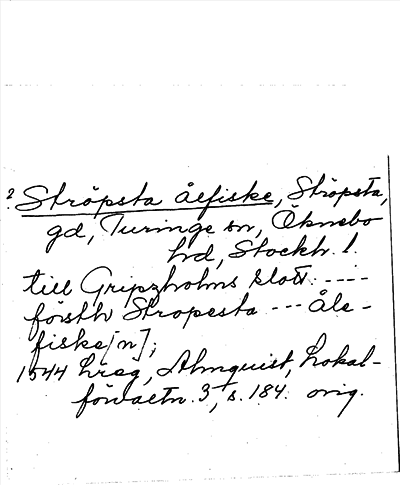 ? Ströpsta ålfiske, Ströpsta,
gd, Turinge sn, Öknebo
hd, Stockh. l.
till Gripzholms slott. ----
försth Stropesta --- Åle-
fiske[n];
1544 hreg, Almquist, Lokal-
förvaltn. 3, s. 184. orig.